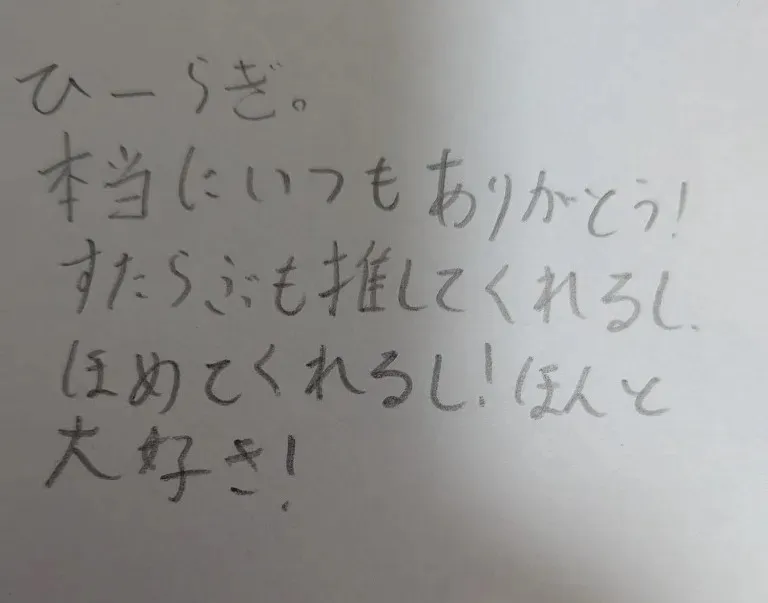 ひーらぎ。
本当にいつもありがとう!
すたらぶも推してくれるし、
ほめてくれるし!ほんと
大好き!